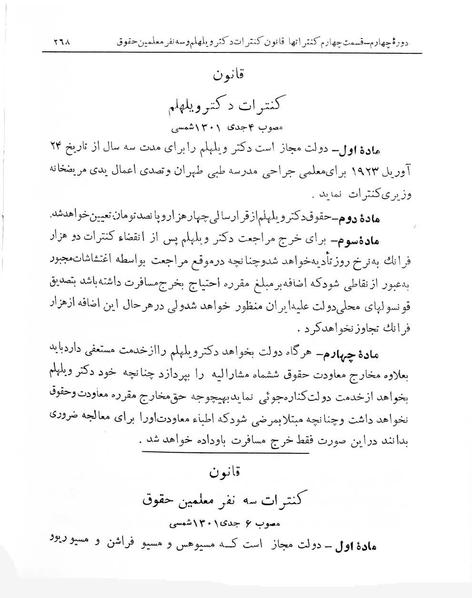 دورهٔ چهارم-قسمت چهارم کنتراتها قانون کنترات دکتر ویلهلم و سه نفر معلمین حقوق ۲۶۸
قانون
کنترات دکتر ویلهلم
مصوب ۴ جدی ۱۳۰۱ شمسی
مادهٔ اول- دولت مجاز است دکتر ویلهلم را برای مدت سه سال از تاریخ ۲۴
آوریل ۱۹۲۳ برای معلمی جراحی مدرسه طبی طهران و تصدی اعمال یدی مریضخانه
وزیری کنترات نماید .
مادهٔ دوم- حقوق دکتر ویلهلم از قرار سالی چهار هزار و پانصد تومان تعیین خواهد شد.
مادهٔ سوم- برای خرج مراجعت دکتر ویلهلم پس از انقضاء کنترات دو هزار
فرانك به نرخ روز تأدیه خواهد شد و چنانچه در موقع مراجعت بواسطه اغتشاشات مجبور
به عبور از نقاطی شود که اضافه بر مبلغ مقرره احتیاج بخرج مسافرت داشته باشد بتصدیق
قونسولهای محلی دولت علیه ایران منظور خواهد شد ولی در هر حال این اضافه از هزار
فرانك تجاوز نخواهد کرد .
مادهٔ چهارم- هر گاه دولت بخواهد دکتر ویلهلم را از خدمت مستعفی دارد باید
بعلاوه مخارج معاودت حقوق ششماه مشارالیه را بپردازد چنانچه خود دکتر ویلهلم
بخواهد از خدمت دولت کناره جوئی نماید بهیچوجه حق مخارج مقرره معاودت و حقوق
نخواهد داشت و چنانچه مبتلا بمرضی شود که اطباء معاودت اورا برای معالجه ضروری
بدانند در این صورت فقط خرج مسافرت باو داده خواهد شد .
قانون
کنترات سه نفر معلمین حقوق
مصوب ۶ جدی ۱۳۰۱ شمسی
مادهٔ اول - دولت مجاز است که مسیوهس و مسیو فراشن و مسیو ریوو